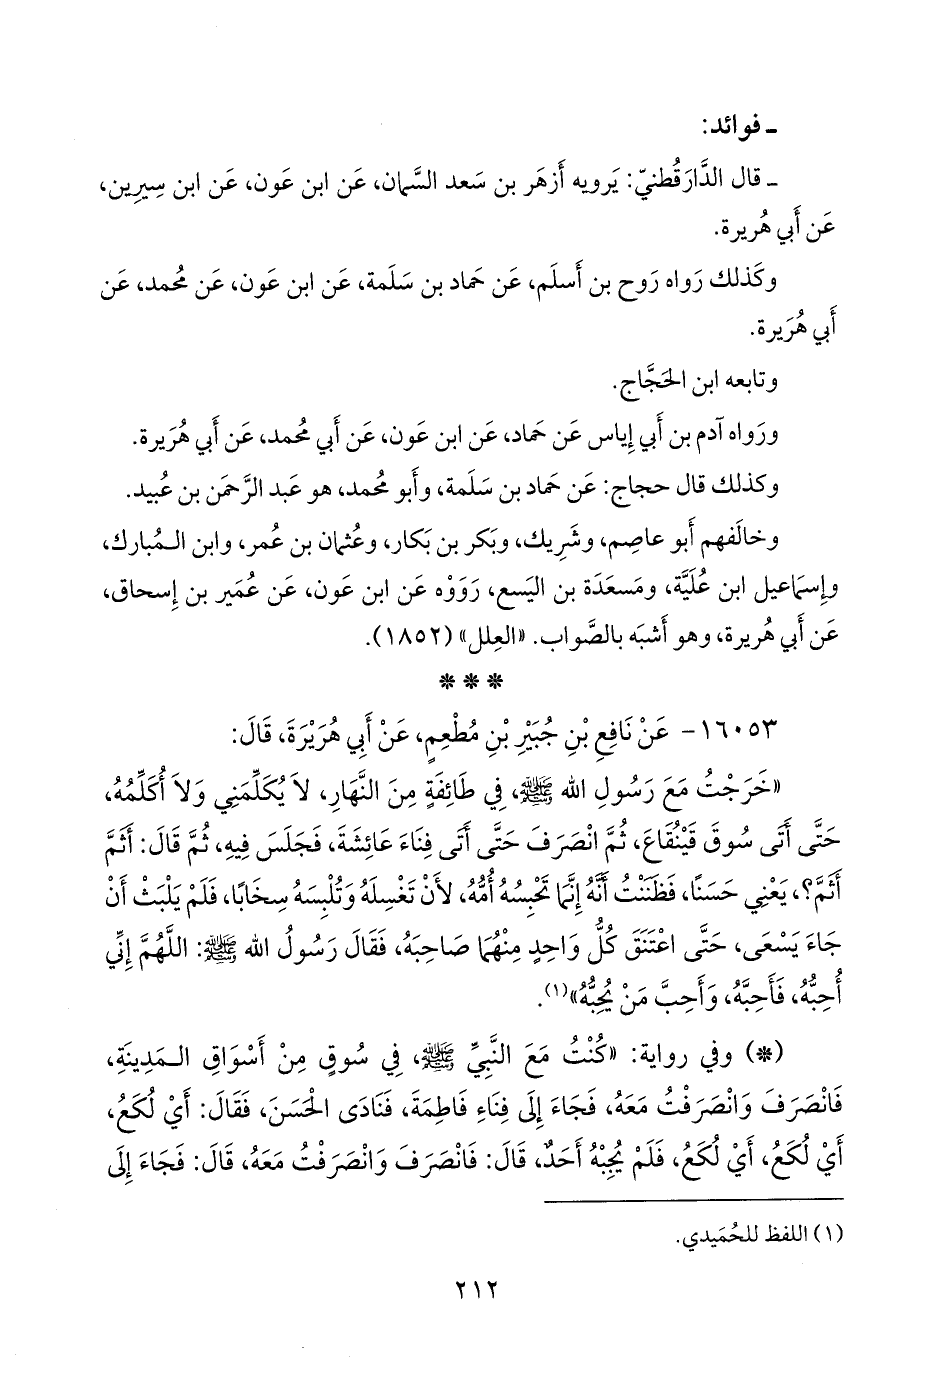 ـ فوائد:
ـ قال الدَّارَقُطنيّ: يَرويه أَزهَر بن سَعد السَّمان، عَن ابن عَون، عَن ابن سِيرِين،
عَن أَبي هُريرة.
وكَذلك رَواه رَوح بن أَسلَم، عَن حَماد بن سَلَمة، عَن ابن عَون، عَن مُحمد، عَن
أَبي هُرَيرة.
وتابعه ابن الحَجَّاج.
ورَواه آدم بن أَبي إِياس عَن حَماد، عَن ابن عَون، عَن أَبي مُحمد، عَن أَبي هُرَيرة.
وكذلك قال حجاج: عَن حَماد بن سَلَمة، وأَبو مُحمد، هو عَبد الرَّحمَن بن عُبيد.
وخالَفهم أَبو عاصِم، وشَرِيك، وبَكر بن بَكار، وعُثمان بن عُمر، وابن الـمُبارك،
وإِسماعيل ابن عُلَيَّة، ومَسعَدَة بن اليَسع، رَوَوْه عَن ابن عَون، عَن عُمَير بن إِسحاق،
عَن أَبي هُريرة، وهو أَشبَه بالصَّواب. «العِلل» (١٨٥٢).
* * *
١٦٠٥٣- عَنْ نَافِعِ بْنِ جُبَيْرِ بْنِ مُطْعِمٍ، عَنْ أَبِي هُرَيْرَةَ، قَالَ:
«خَرَجْتُ مَعَ رَسُولِ الله ﷺ، فِي طَائِفَةٍ مِنَ النَّهَارِ، لاَ يُكَلِّمُنِي وَلاَ أُكَلِّمُهُ،
حَتَّى أَتَى سُوقَ قَيْنُقَاعَ، ثُمَّ انْصَرَفَ حَتَّى أَتَى فِنَاءَ عَائِشَةَ، فَجَلَسَ فِيهِ، ثُمَّ قَالَ: أَثَمَّ
أَثَمَّ؟، يَعْنِي حَسَنًا، فَظَنَنْتُ أَنَّهُ إِنَّمَا تَحْبِسُهُ أُمُّهُ، لأَنْ تَغْسِلَهُ وَتُلْبِسَهُ سِخَابًا، فَلَمْ يَلْبَثْ أَنْ
جَاءَ يَسْعَى، حَتَّى اعْتَنَقَ كُلُّ وَاحِدٍ مِنْهُمَا صَاحِبَهُ، فَقَالَ رَسُولُ الله ﷺ: اللَّهُمَّ إِنِّي
أُحِبُّهُ، فَأَحِبَّهُ، وَأَحِبَّ مَنْ يُحِبُّهُ»(١).
(*) وفي رواية: «كُنْتُ مَعَ النَّبِيِّ ﷺ، فِي سُوقٍ مِنْ أَسْوَاقِ الـمَدِينَةِ،
فَانْصَرَفَ وَانْصَرَفْتُ مَعَهُ، فَجَاءَ إِلَى فِنَاءِ فَاطِمَةَ، فَنَادَى الْحَسَنَ، فَقَالَ: أَيْ لُكَعُ،
أَيْ لُكَعُ، أَيْ لُكَعُ، فَلَمْ يُجِبْهُ أَحَدٌ، قَالَ: فَانْصَرَفَ وَانْصَرَفْتُ مَعَهُ، قَالَ: فَجَاءَ إِلَى
(١) اللفظ للحُمَيدي.
٢١٢